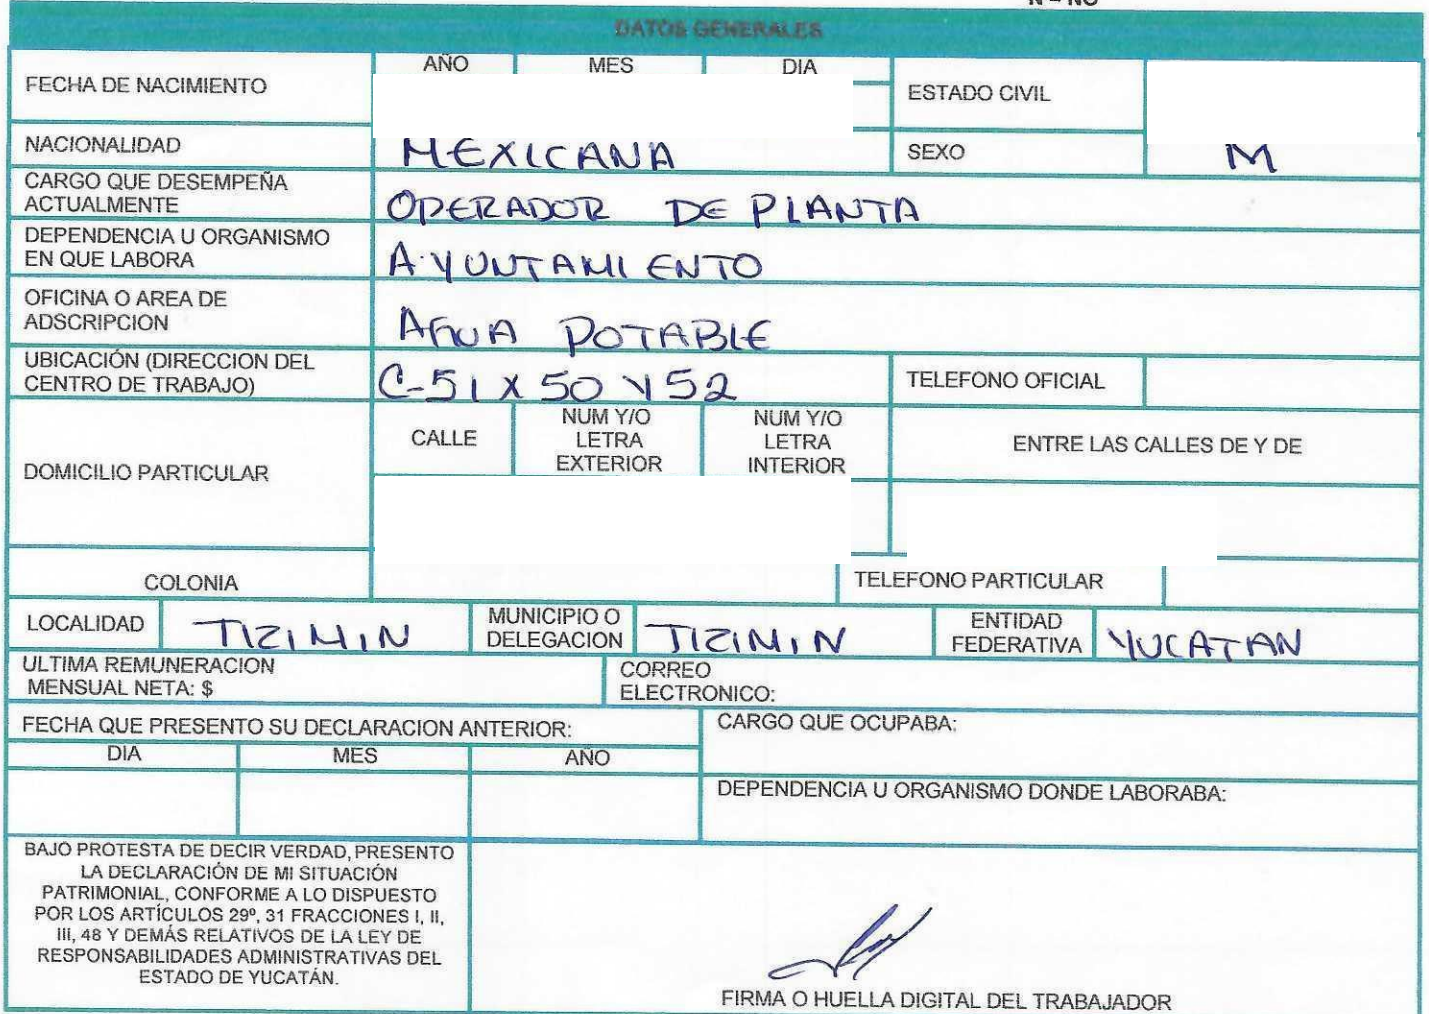 DATOS GENERALES
FECHA DE NACIMIENTO AÑO MES DIA ESTADO CIVIL
NACIONALIDAD MEXICANA SEXO M
CARGO QUE DESEMPEÑA
ACTUALMENTE OPERADOR DE PLANTA
DEPENDENCIA U ORGANISMO
EN QUE LABORA AYUNTAMIENTO
OFICINA O AREA DE
ADSCRIPCION AGUA POTABLE
UBICACIÓN (DIRECCION DEL
CENTRO DE TRABAJO) C-51 X 50 Y 52 TELEFONO OFICIAL
DOMICILIO PARTICULAR
CALLE
NUM Y/O
LETRA
EXTERIOR
NUM Y/O
LETRA
INTERIOR
ENTRE LAS CALLES DE Y DE
COLONIA TELEFONO PARTICULAR
LOCALIDAD TIZIMIN
MUNICIPIO O
DELEGACION TIZIMIN
ENTIDAD
FEDERATIVA YUCATAN
ULTIMA REMUNERACION
MENSUAL NETA: $
CORREO
ELECTRONICO:
FECHA QUE PRESENTO SU DECLARACION ANTERIOR:
DIA MES AÑO
CARGO QUE OCUPABA:
DEPENDENCIA U ORGANISMO DONDE LABORABA:
BAJO PROTESTA DE DECIR VERDAD, PRESENTO
LA DECLARACIÓN DE MI SITUACIÓN
PATRIMONIAL, CONFORME A LO DISPUESTO
POR LOS ARTÍCULOS 29º, 31 FRACCIONES I, II,
III, 48 Y DEMÁS RELATIVOS DE LA LEY DE
RESPONSABILIDADES ADMINISTRATIVAS DEL
ESTADO DE YUCATÁN.
FIRMA O HUELLA DIGITAL DEL TRABAJADOR